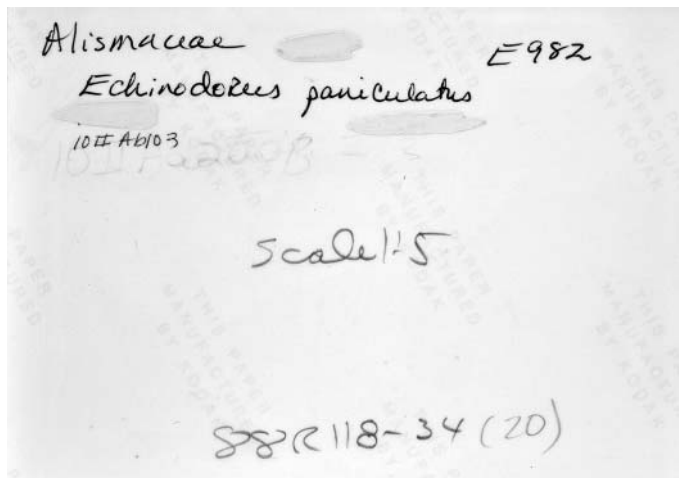 Alismaceae E982
Echinodorus paniculatus
10 II Ab103
Scale 1:5
88R118-34 (20)
THIS PAPER
MANUFACTURED
BY KODAK